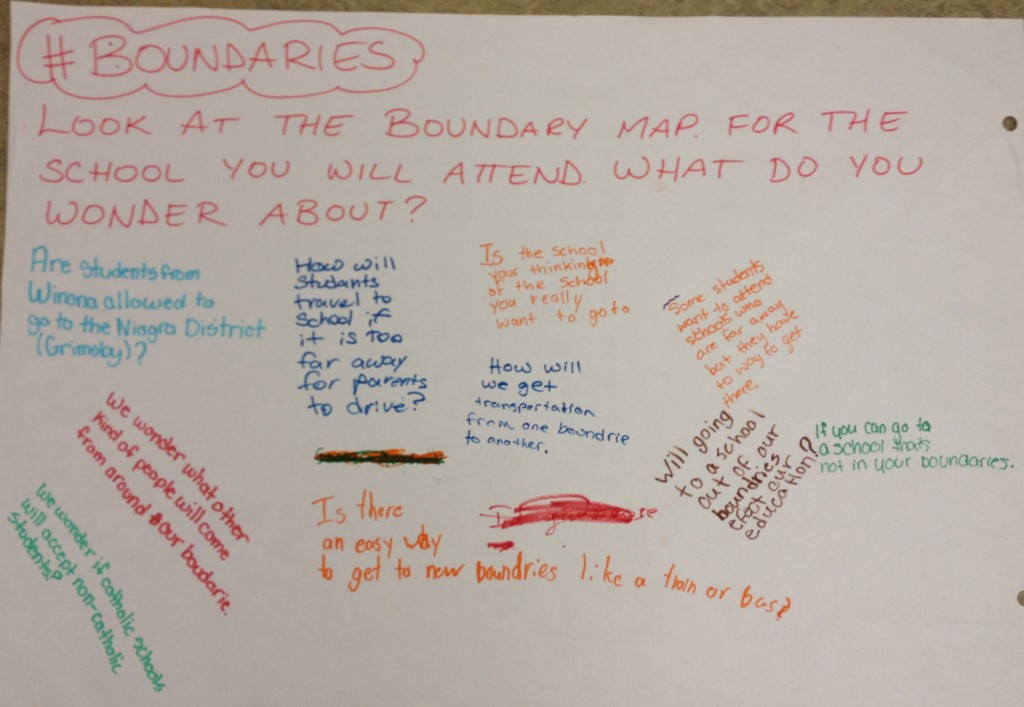 #BOUNDARIES
LOOK AT THE BOUNDARY MAP. FOR THE
SCHOOL YOU WILL ATTEND. WHAT DO YOU
WONDER ABOUT?
Are students from
Winona allowed to
go to the Niagra District
(Grimsby)?
How will
students
travel to
school if
it is too
far away
for parents
to drive?
Is the school
your thinking
of the school
you really
want to go to
Some students
want to attend
schools who
are far away
but they have
to way to get
there
How will
we get
transportation
from one boundrie
to another.
Will going
to a school
out of our
boundries
efect our
education?
If you can go to
a school thats
not in your boundaries.
We wonder what other
kind of people will come
from around our boudarie.
We wonder if catholic schools
will accept non-catholic
students?
Is there
an easy way
to get to new boundries like a train or bus?